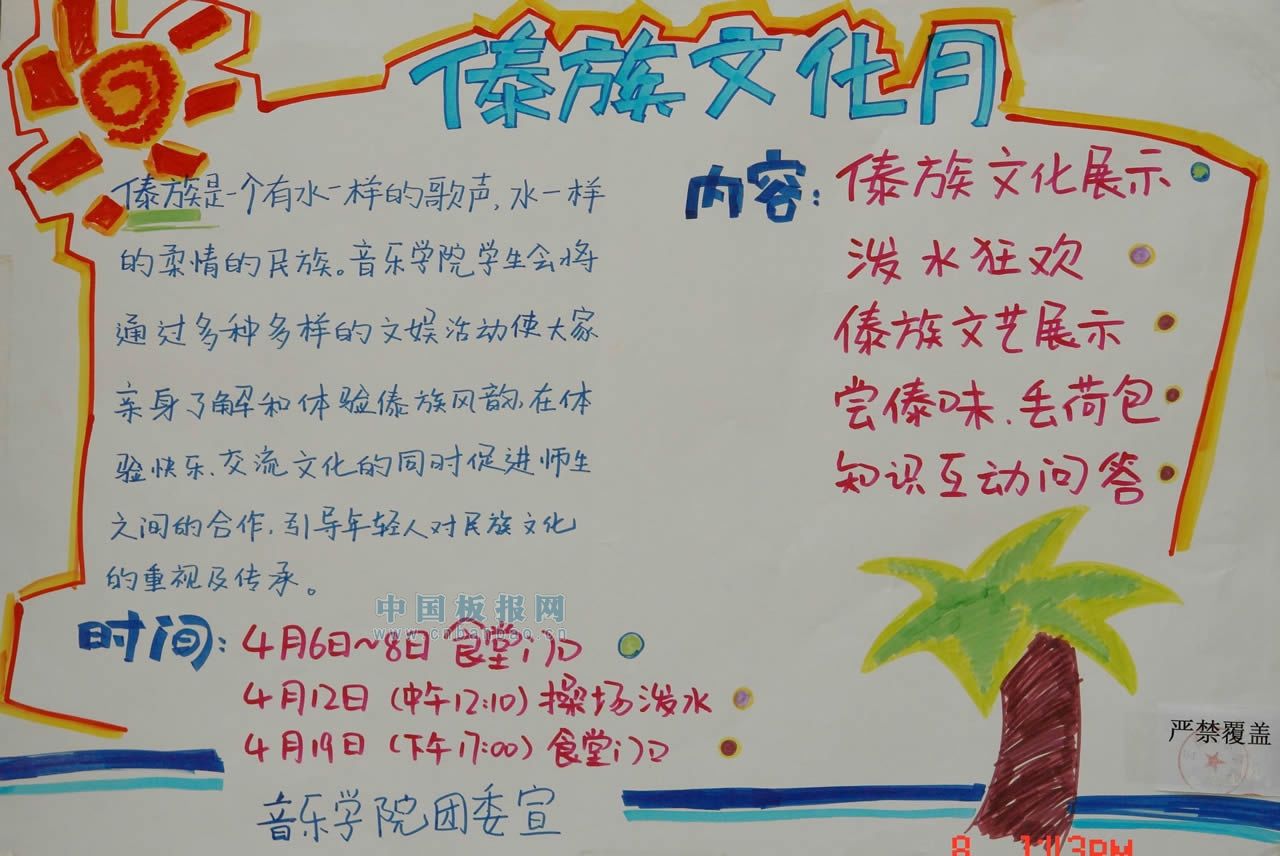 傣族文化月
傣族是一个有水一样的歌声,水一样
的柔情的民族。音乐学院学生会将
通过多种多样的文娱活动使大家
亲身了解和体验傣族风韵,在体
验快乐、交流文化的同时促进师生
之间的合作,引导年轻人对民族文化
的重视及传承。
内容:傣族文化展示
泼水狂欢
傣族文艺展示
尝傣味、丢荷包
知识互动问答
时间:4月6日~8日 食堂门口
4月12日(中午12:10)操场泼水
4月19日(下午17:00)食堂门口
音乐学院团委宣
中国板报网
www.cnbanbao.cn
严禁覆盖